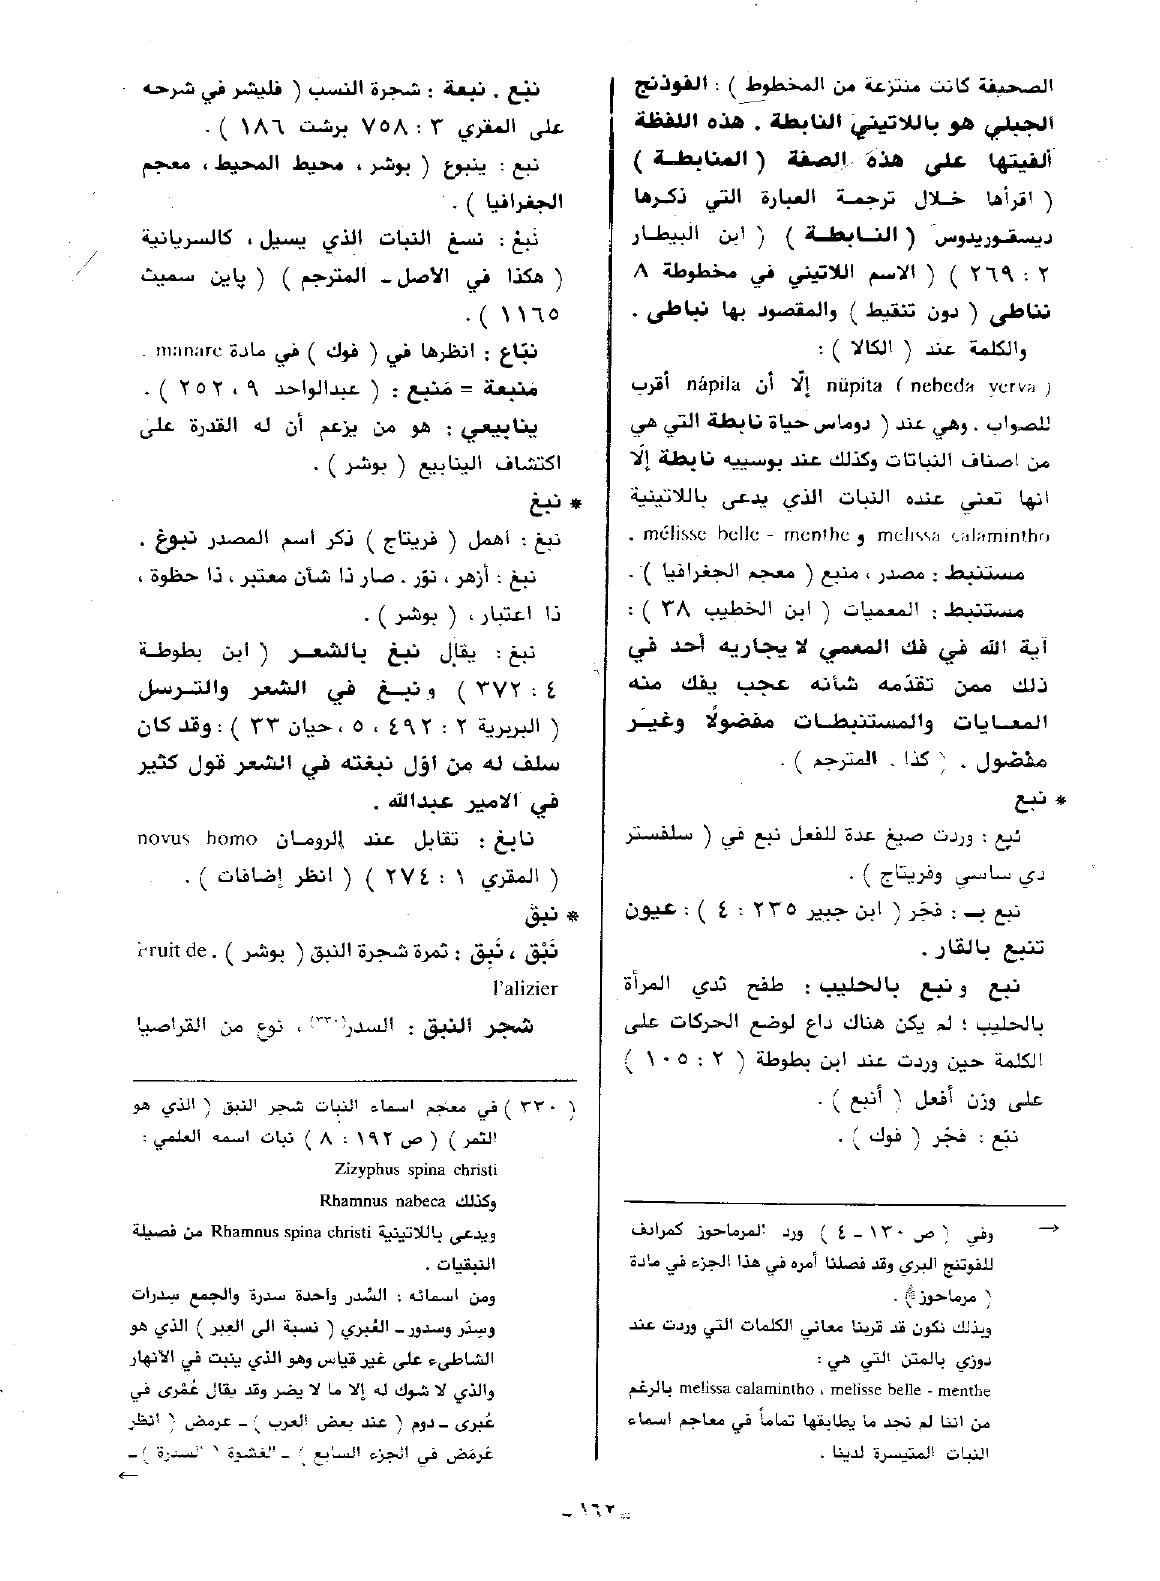 الصحيفة كانت منتزعة من المخطوط ) : الفوذنج
الجبلي هو باللاتيني النابطة . هذه اللفظة
ألفيتها على هذه الصفة ( المنابطة )
( اقرأها خلال ترجمة العبارة التي ذكرها
ديسقوريدوس ( النابطة ) ( ابن البيطار
٢ : ٢٦٩ ) ( الاسم اللاتيني في مخطوطة ٨
نناطي ( دون تنقيط ) والمقصود بها نباطى .
والكلمة عند ( الكالا ) :
nüpita ( nebeda yerva ) إلّا أن nápila أقرب
للصواب . وهي عند ( دوماس حياة نابطة التي هي
من اصناف النباتات وكذلك عند بوسييه نابطة إلّا
انها تعني عنده النبات الذي يدعى باللاتينية
melissa calamintho و mélisse belle - menthe .
مستنبط : مصدر ، منبع ( معجم الجغرافيا ) .
مستنبط : المعميات ( ابن الخطيب ٣٨ ) :
آية الله في فك المعمي لا يجاريه أحد في
ذلك ممن تقدّمه شأنه عجب يفك منه
المعايات والمستنبطات مفضولًا وغير
مفضول . ( كذا . المترجم ) .
* نبع
نبع : وردت صيغ عدة للفعل نبع في ( سلفستر
دي ساسي وفريتاج ) .
نبع بـ : فجّر ( ابن جبير ٢٣٥ : ٤ ) : عيون
تنبع بالقار .
نبع و نبع بالحليب : طفح ثدي المرأة
بالحليب ؛ لم يكن هناك داع لوضع الحركات على
الكلمة حين وردت عند ابن بطوطة ( ٢ : ١٠٥ )
على وزن أفعل ( أنبع ) .
نبّع : فجّر ( فوك ) .
← وفي ( ص ١٣٠ - ٤ ) ورد المرماحوز كمرادف
للفوتنج البري وقد فصلنا أمره في هذا الجزء في مادة
( مرماحوز ) .
وبذلك نكون قد قربنا معاني الكلمات التي وردت عند
دوزي بالمتن التي هي :
melissa calamintho ، melisse belle - menthe بالرغم
من اننا لم نجد ما يطابقها تماماً في معاجم اسماء
النبات المتيسرة لدينا .
نبْع . نبعة : شجرة النسب ( فليشر في شرحه
على المقري ٣ : ٧٥٨ برشت ١٨٦ ) .
نبع : ينبوع ( بوشر ، محيط المحيط ، معجم
الجغرافيا ) .
نَبغ : نسغ النبات الذي يسيل ، كالسريانية
( هكذا في الاصل - المترجم ) ( پاين سميث
١١٦٥ ) .
نبّاع : انظرها في ( فوك ) في مادة manare .
مَنبعة = مَنبع : ( عبدالواحد ٩ ، ٢٥٢ ) .
ينابيعي : هو من يزعم أن له القدرة على
اكتشاف الينابيع ( بوشر ) .
* نبغ
نبغ : اهمل ( فريتاج ) ذكر اسم المصدر نبوغ .
نبغ : أزهر ، نوّر . صار ذا شأن معتبر ، ذا حظوة ،
ذا اعتبار ، ( بوشر ) .
نبغ : يقال نبغ بالشعر ( ابن بطوطة
٤ : ٣٧٢ ) و نبغ في الشعر والترسل
( البربرية ٢ : ٤٩٢ ، ٥ ، حيان ٣٣ ) : وقد كان
سلف له من اوّل نبغته في الشعر قول كثير
في الامير عبدالله .
نابغ : تقابل عند الرومان novus homo
( المقري ١ : ٢٧٤ ) ( انظر إضافات ) .
* نبق
نَبْق ، نَبِق : ثمرة شجرة النبق ( بوشر ) . fruit de
l'alizier
شجر النبق : السدر(٣٣٠) ، نوع من القراصيا
( ٣٣٠ ) في معجم اسماء النبات شجر النبق ( الذي هو
الثمر ) ( ص ١٩٢ : ٨ ) نبات اسمه العلمي :
Zizyphus spina christi
وكذلك Rhamnus nabeca
ويدعى باللاتينية Rhamnus spina christi من فصيلة
النبقيات .
ومن اسمائه : السّدر واحدة سدرة والجمع سِدرات
وسِدَر وسدور - العُبري ( نسبة الى العبر ) الذي هو
الشاطىء على غير قياس وهو الذي ينبت في الأنهار
والذي لا شوك له إلا ما لا يضر وقد يقال عُمْرى في
عُبرى - دوم ( عند بعض العرب ) - عرمض ( انظر
عَرمَض في الجزء السابع ) - الغشوة ( السدرة ) -
←
- ١٦٢ -